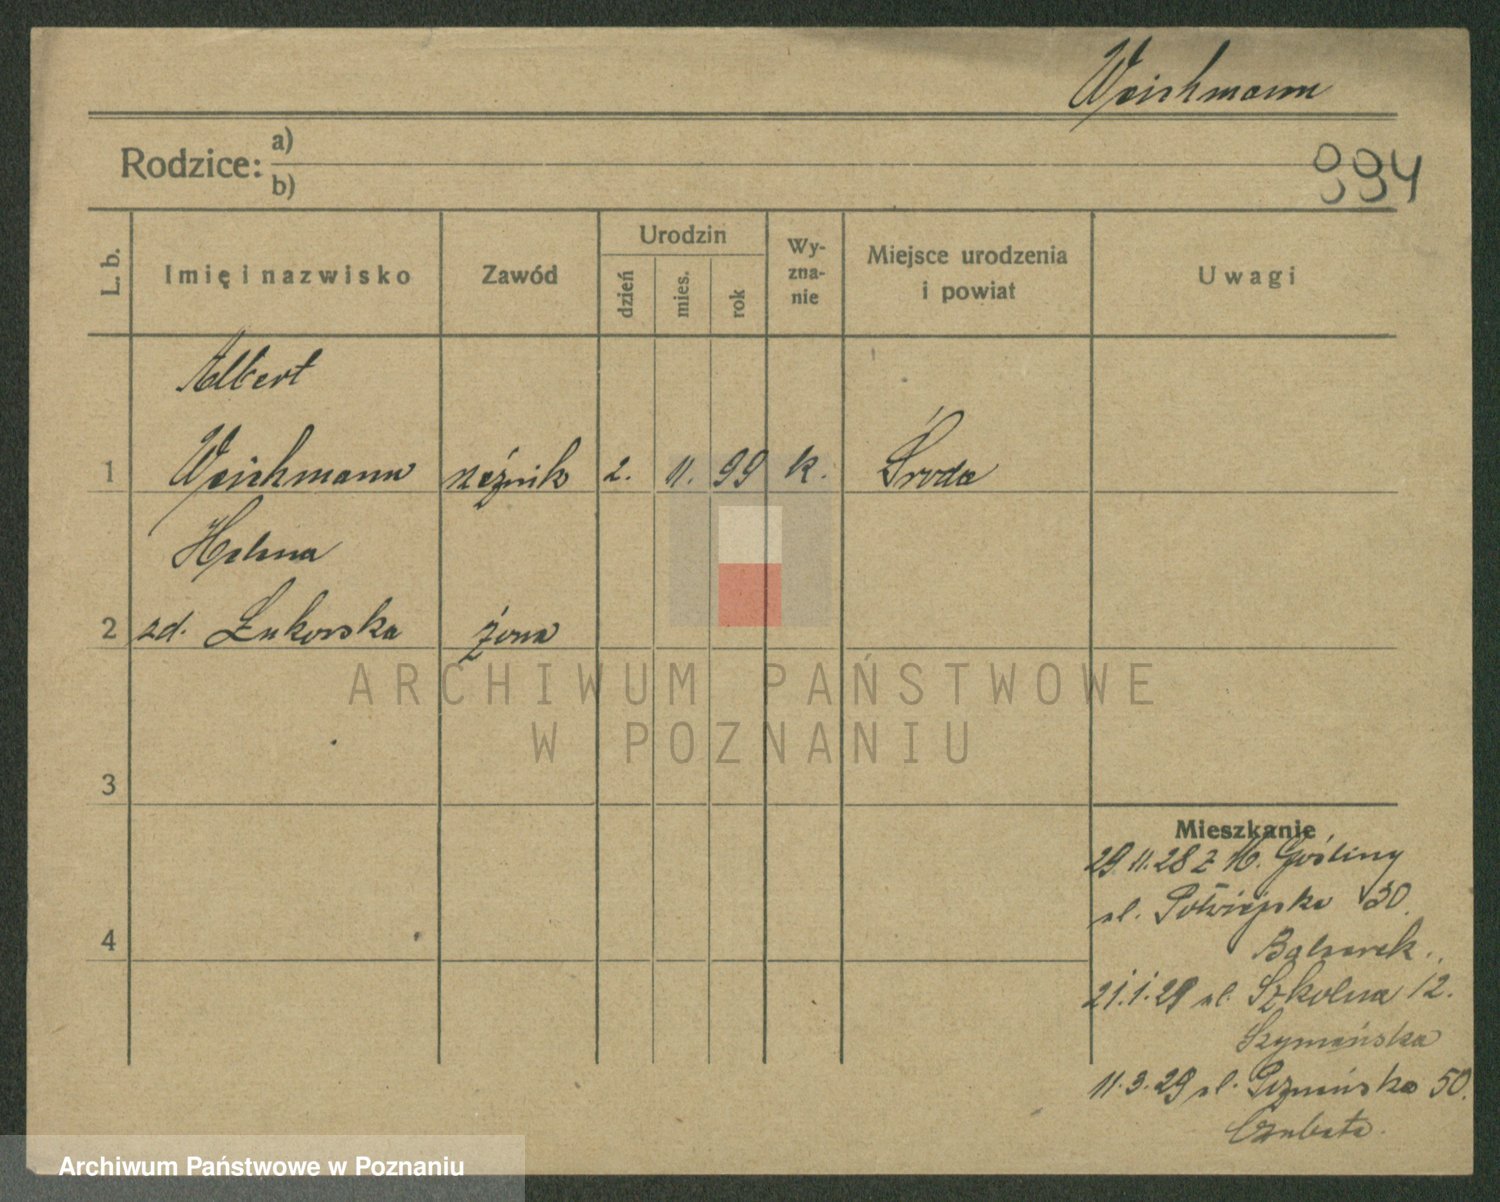 Weichmann
Rodzice: a)
b)
994
L. b.
Imię i nazwisko
Zawód
Urodzin
dzień
mies.
rok
Wy-
zna-
nie
Miejsce urodzenia
i powiat
Uwagi
Albert
1 Weichmann rzeźnik 2. 11. 99 k. Środa
Helena
2 zd. Żukowska żona
3
4
Mieszkanie
29.11.28 z M. Gośliny
ul. Półwiejska 30.
21.1.29 ul. Szkolna 12.
Szymańska
11.3.29 ul. Poznańska 50.
Czubata.
ARCHIWUM PAŃSTWOWE
W POZNANIU
Archiwum Państwowe w Poznaniu